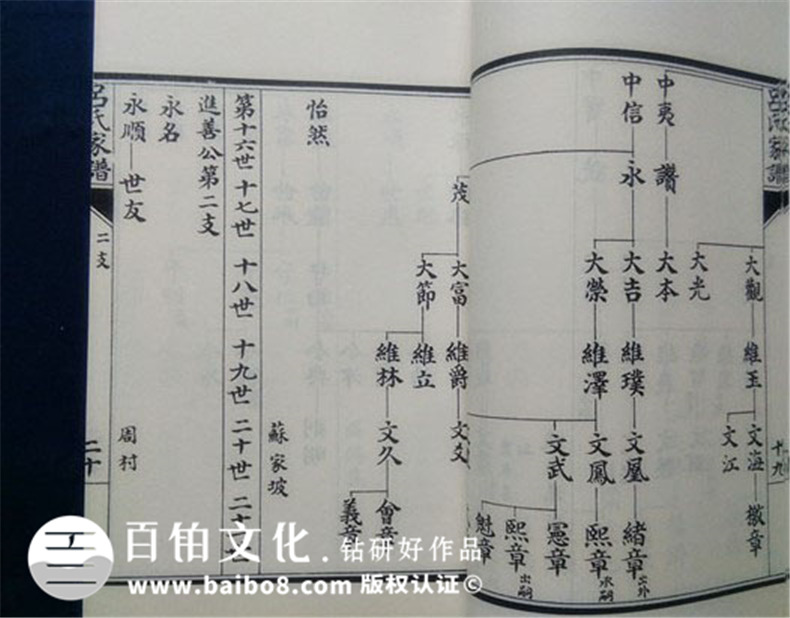 呂氏家譜
十九
大觀
維玉
文海
徵章
文江
大光
中夷
讚
大本
中信
永
大吉
維璞
文凰
緒章
出外
大榮
維澤
文鳳
熙章
承嗣
文武
憲章
熙章
出嗣
魁章
茂
大富
維爵
文
大節
維立
維林
文久
會章
義章
怡然
蘇家坡
第十六世 十七世 十八世 十九世 二十世 二十
進善公第二支
永名
永順
世友
周村
呂氏家譜
二支
二十
百铂文化.钻研好作品
www.baibo8.com 版权认证©